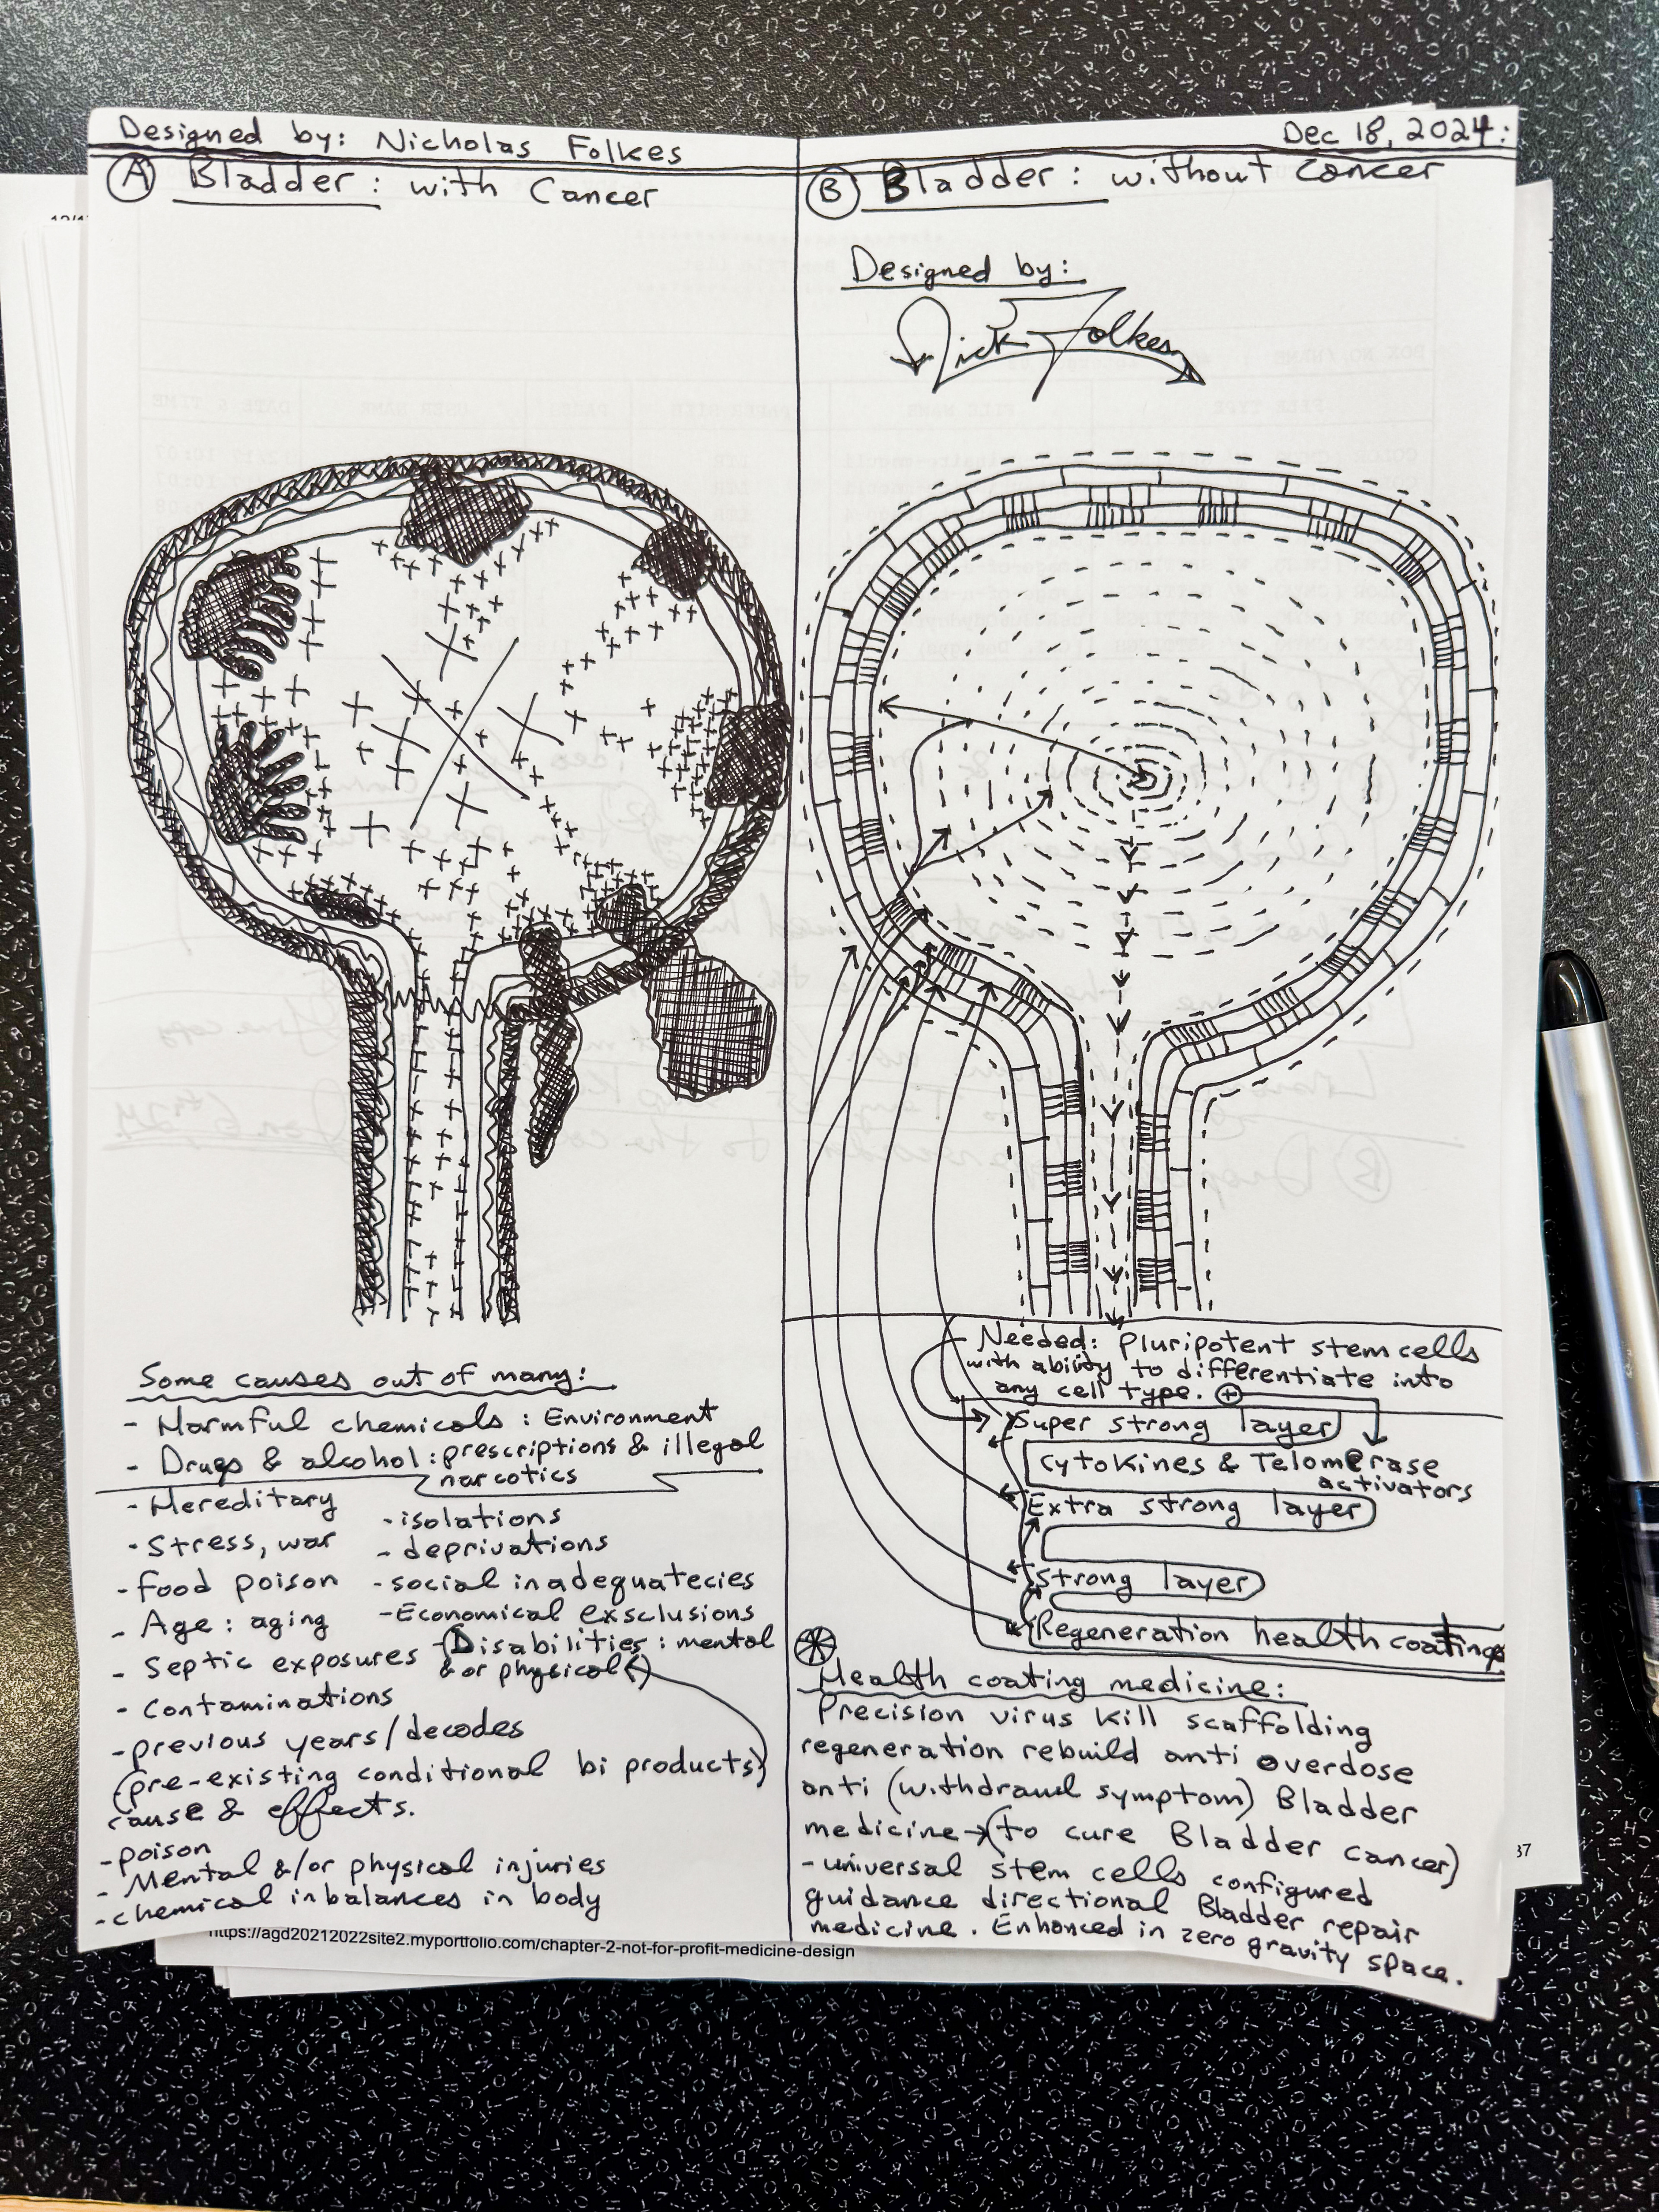 Designed by: Nicholas Folkes
Dec 18, 2024:
A Bladder: with Cancer
Some causes out of many:
- Harmful chemicals: Environment
- Drugs & alcohol: prescriptions & illegal
narcotics
- Hereditary
- Stress, war
- Food poison
- Age: aging
- Septic exposures
- isolations
- deprivations
- social inadequatecies
- Economical exsclusions
- Disabilities: mental
&or physical
- Contaminations
- previous years/decades
(pre-existing conditional bi products)
cause & effects.
- poison
- Mental &/or physical injuries
- chemical inbalances in body
B Bladder: without Cancer
Designed by:
Nick Folkes
Needed: Pluripotent stem cells
with ability to differentiate into
any cell type. +
Super strong layer
Cytokines & Telomerase
activators
Extra strong layer
Strong layer
Regeneration health coating
Health coating medicine:
Precision virus kill scaffolding
regeneration rebuild anti overdose
anti (withdrawl symptom) Bladder
medicine → (to cure Bladder cancer)
- universal stem cells configured
guidance directional Bladder repair
medicine. Enhanced in zero gravity space.
https://agd20212022site2.myportfolio.com/chapter-2-not-for-profit-medicine-design
37